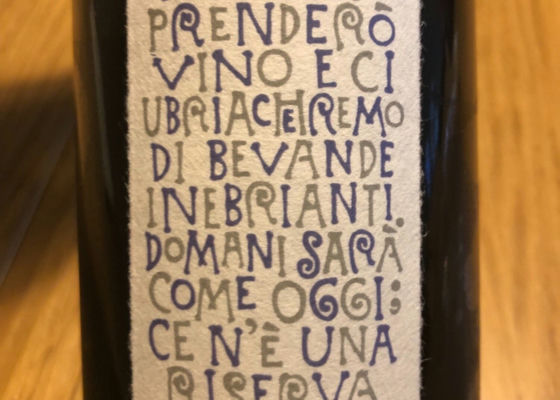 PRENDERÒ
VINO E CI
UBRIACHEREMO
DI BEVANDE
INEBRIANTI.
DOMANI SARÀ
COME OGGI:
CE N'È UNA
RISERVA